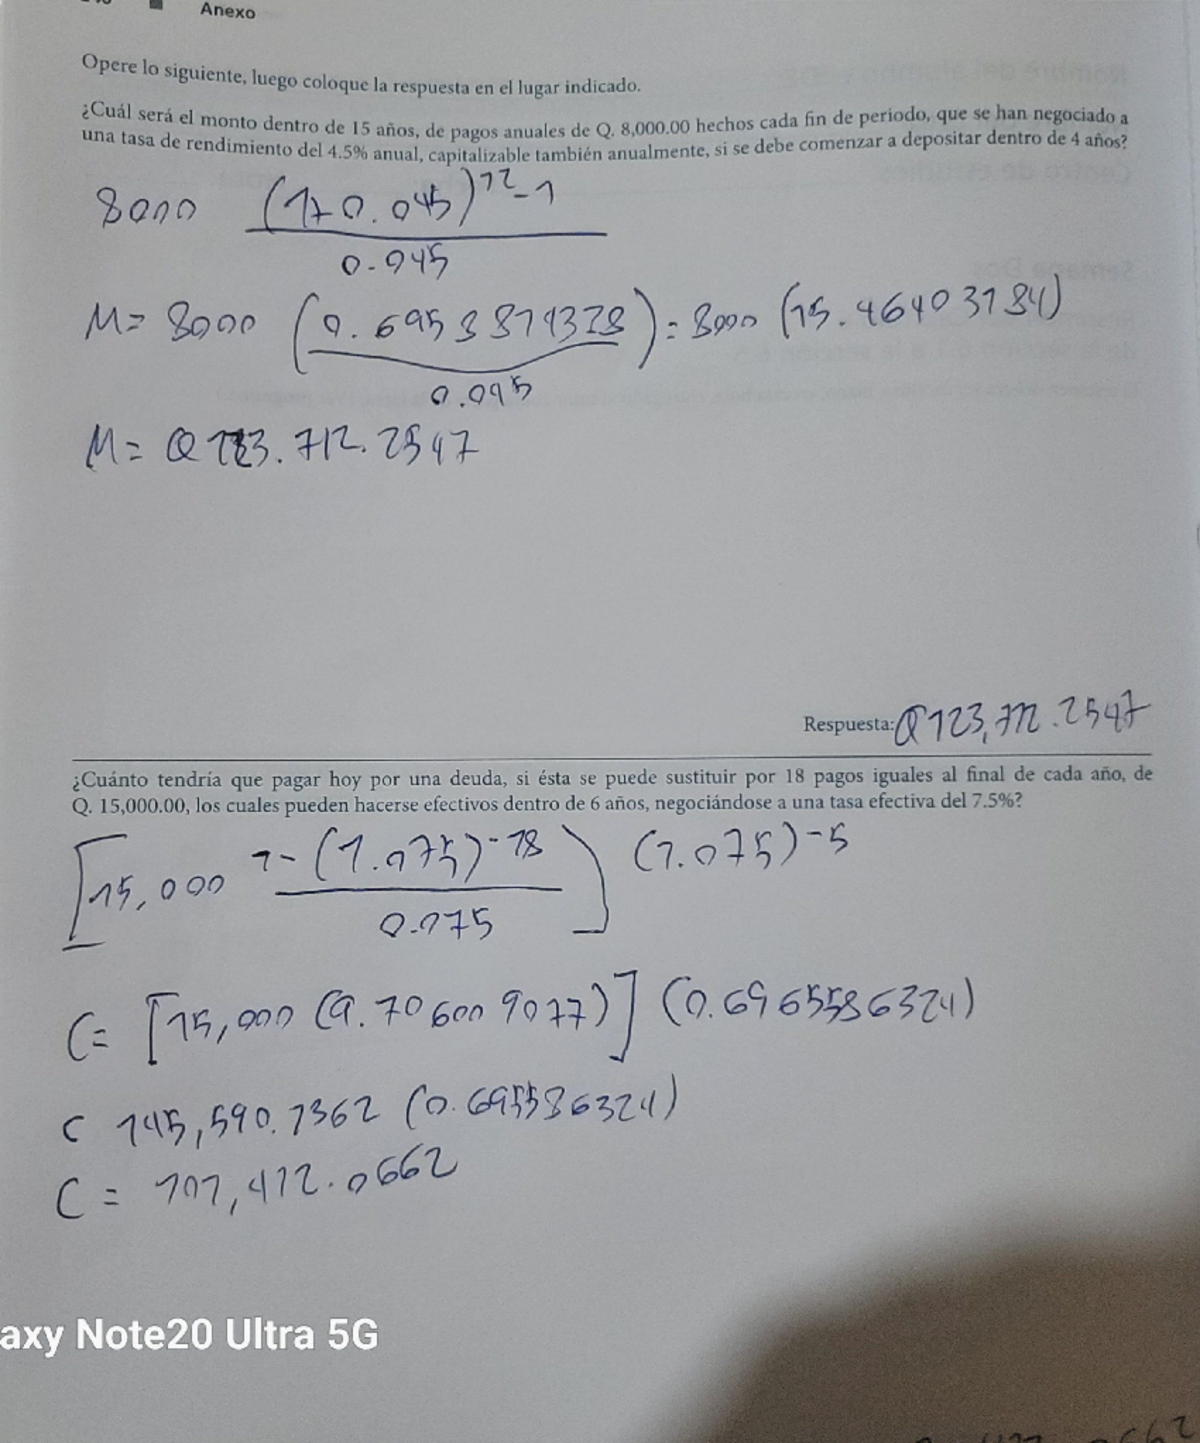 Anexo
Opere lo siguiente, luego coloque la respuesta en el lugar indicado.
¿Cuál será el monto dentro de 15 años, de pagos anuales de Q. 8,000.00 hechos cada fin de periodo, que se han negociado a
una tasa de rendimiento del 4.5% anual, capitalizable también anualmente, si se debe comenzar a depositar dentro de 4 años?
8000 (1+0.045)^12-1
0.045
M= 8000 (0.6958814328) = 8000 (15.46403184)
0.045
M= Q 123.712.2547
Respuesta: Q 123,712.2547
¿Cuánto tendría que pagar hoy por una deuda, si ésta se puede sustituir por 18 pagos iguales al final de cada año, de
Q. 15,000.00, los cuales pueden hacerse efectivos dentro de 6 años, negociándose a una tasa efectiva del 7.5%?
[15,000 1-(1.075)^-18] (1.075)^-5
0.075
C= [15,000 (9.706009077)] (0.6965586324)
C 145,590.1362 (0.695586324)
C = 101,412.0662
axy Note20 Ultra 5G